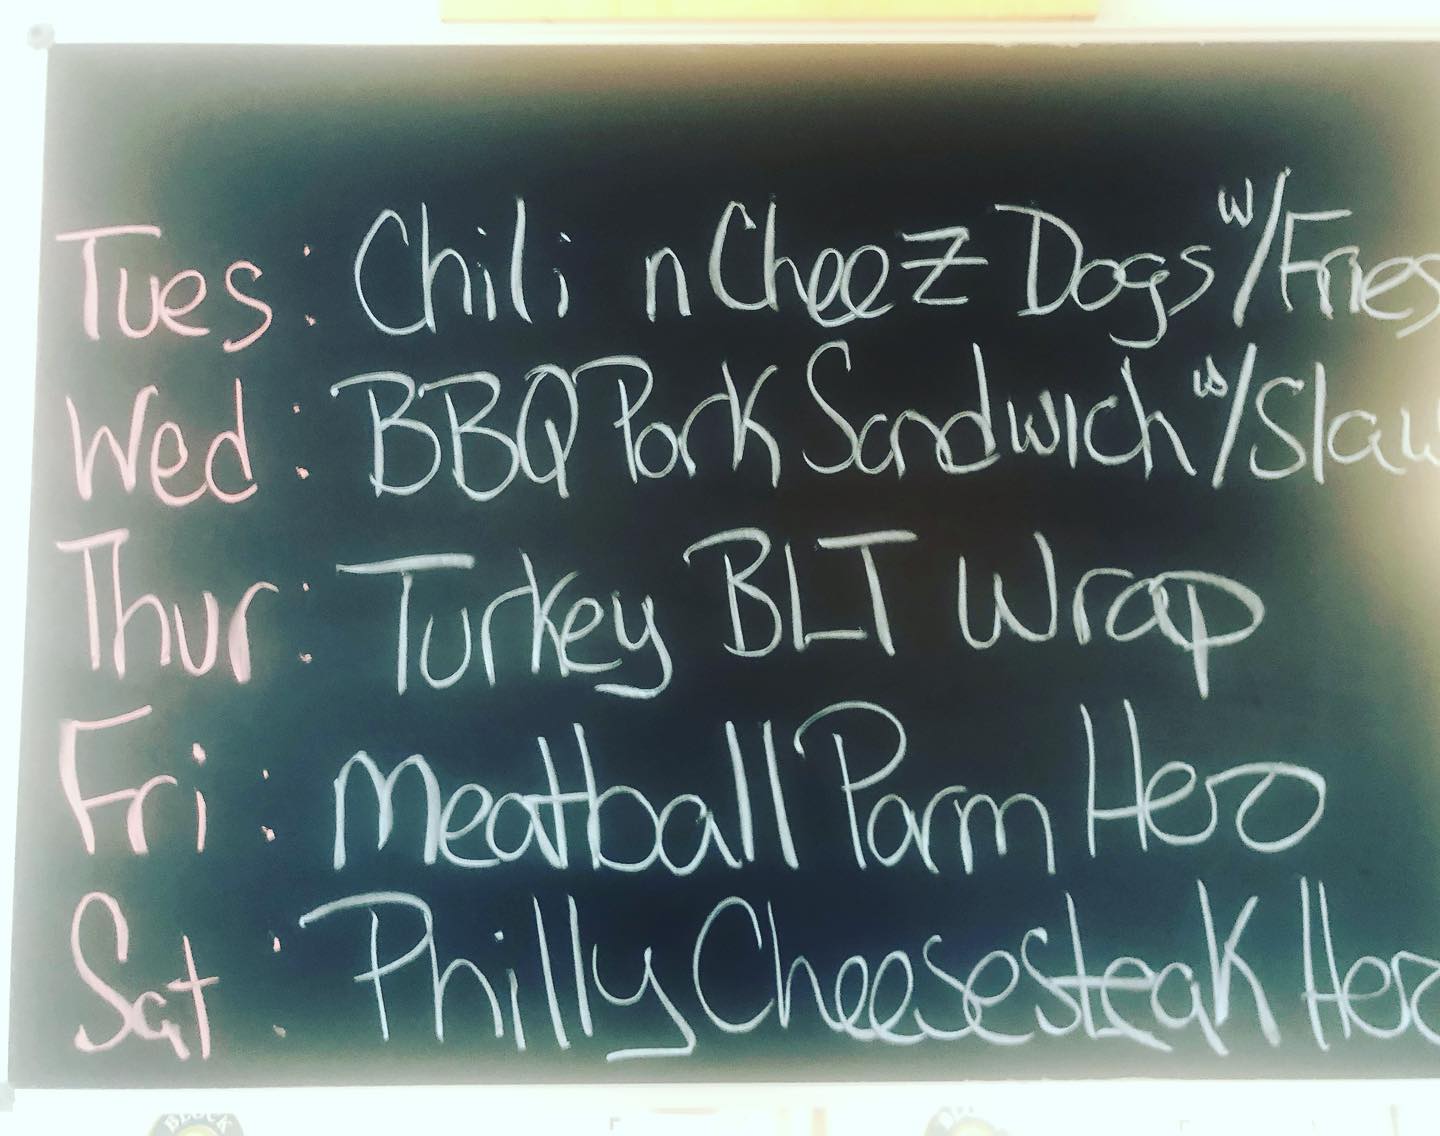 Tues: Chili n CheeZ Dogs w/Fries
Wed: BBQ Pork Sandwich w/Slaw
Thur: Turkey BLT Wrap
Fri: Meatball Parm Hero
Sat: Philly Cheesesteak Hero
BLOCK